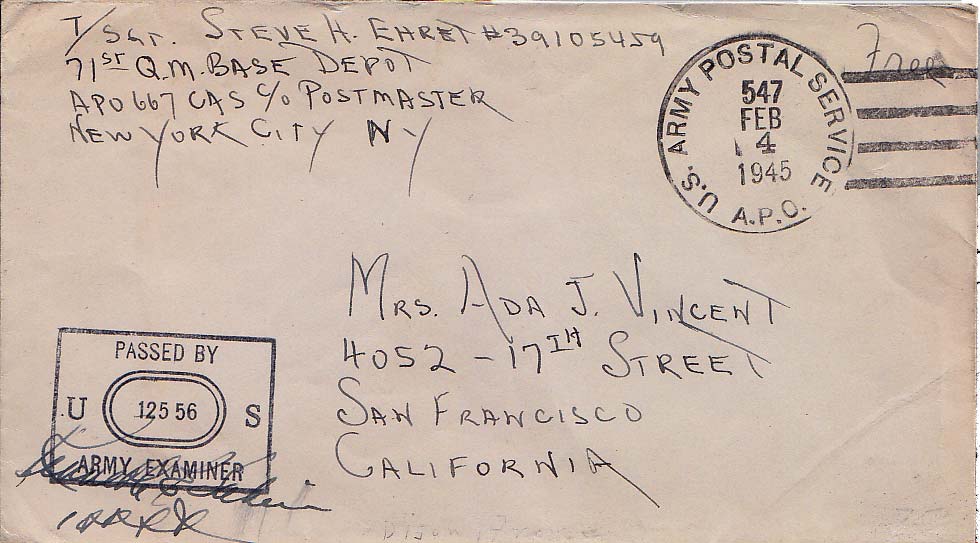 T/SGT. STEVE H. EHRET #39105459
71ST Q.M. BASE DEPOT
APO 667 CAS C/O POSTMASTER
NEW YORK CITY NY
Free
U.S. ARMY POSTAL SERVICE
547
FEB
4
1945
A.P.O.
MRS. ADA J. VINCENT
4052 - 17TH STREET
SAN FRANCISCO
CALIFORNIA
PASSED BY
U 12556 S
ARMY EXAMINER
Dijon, France